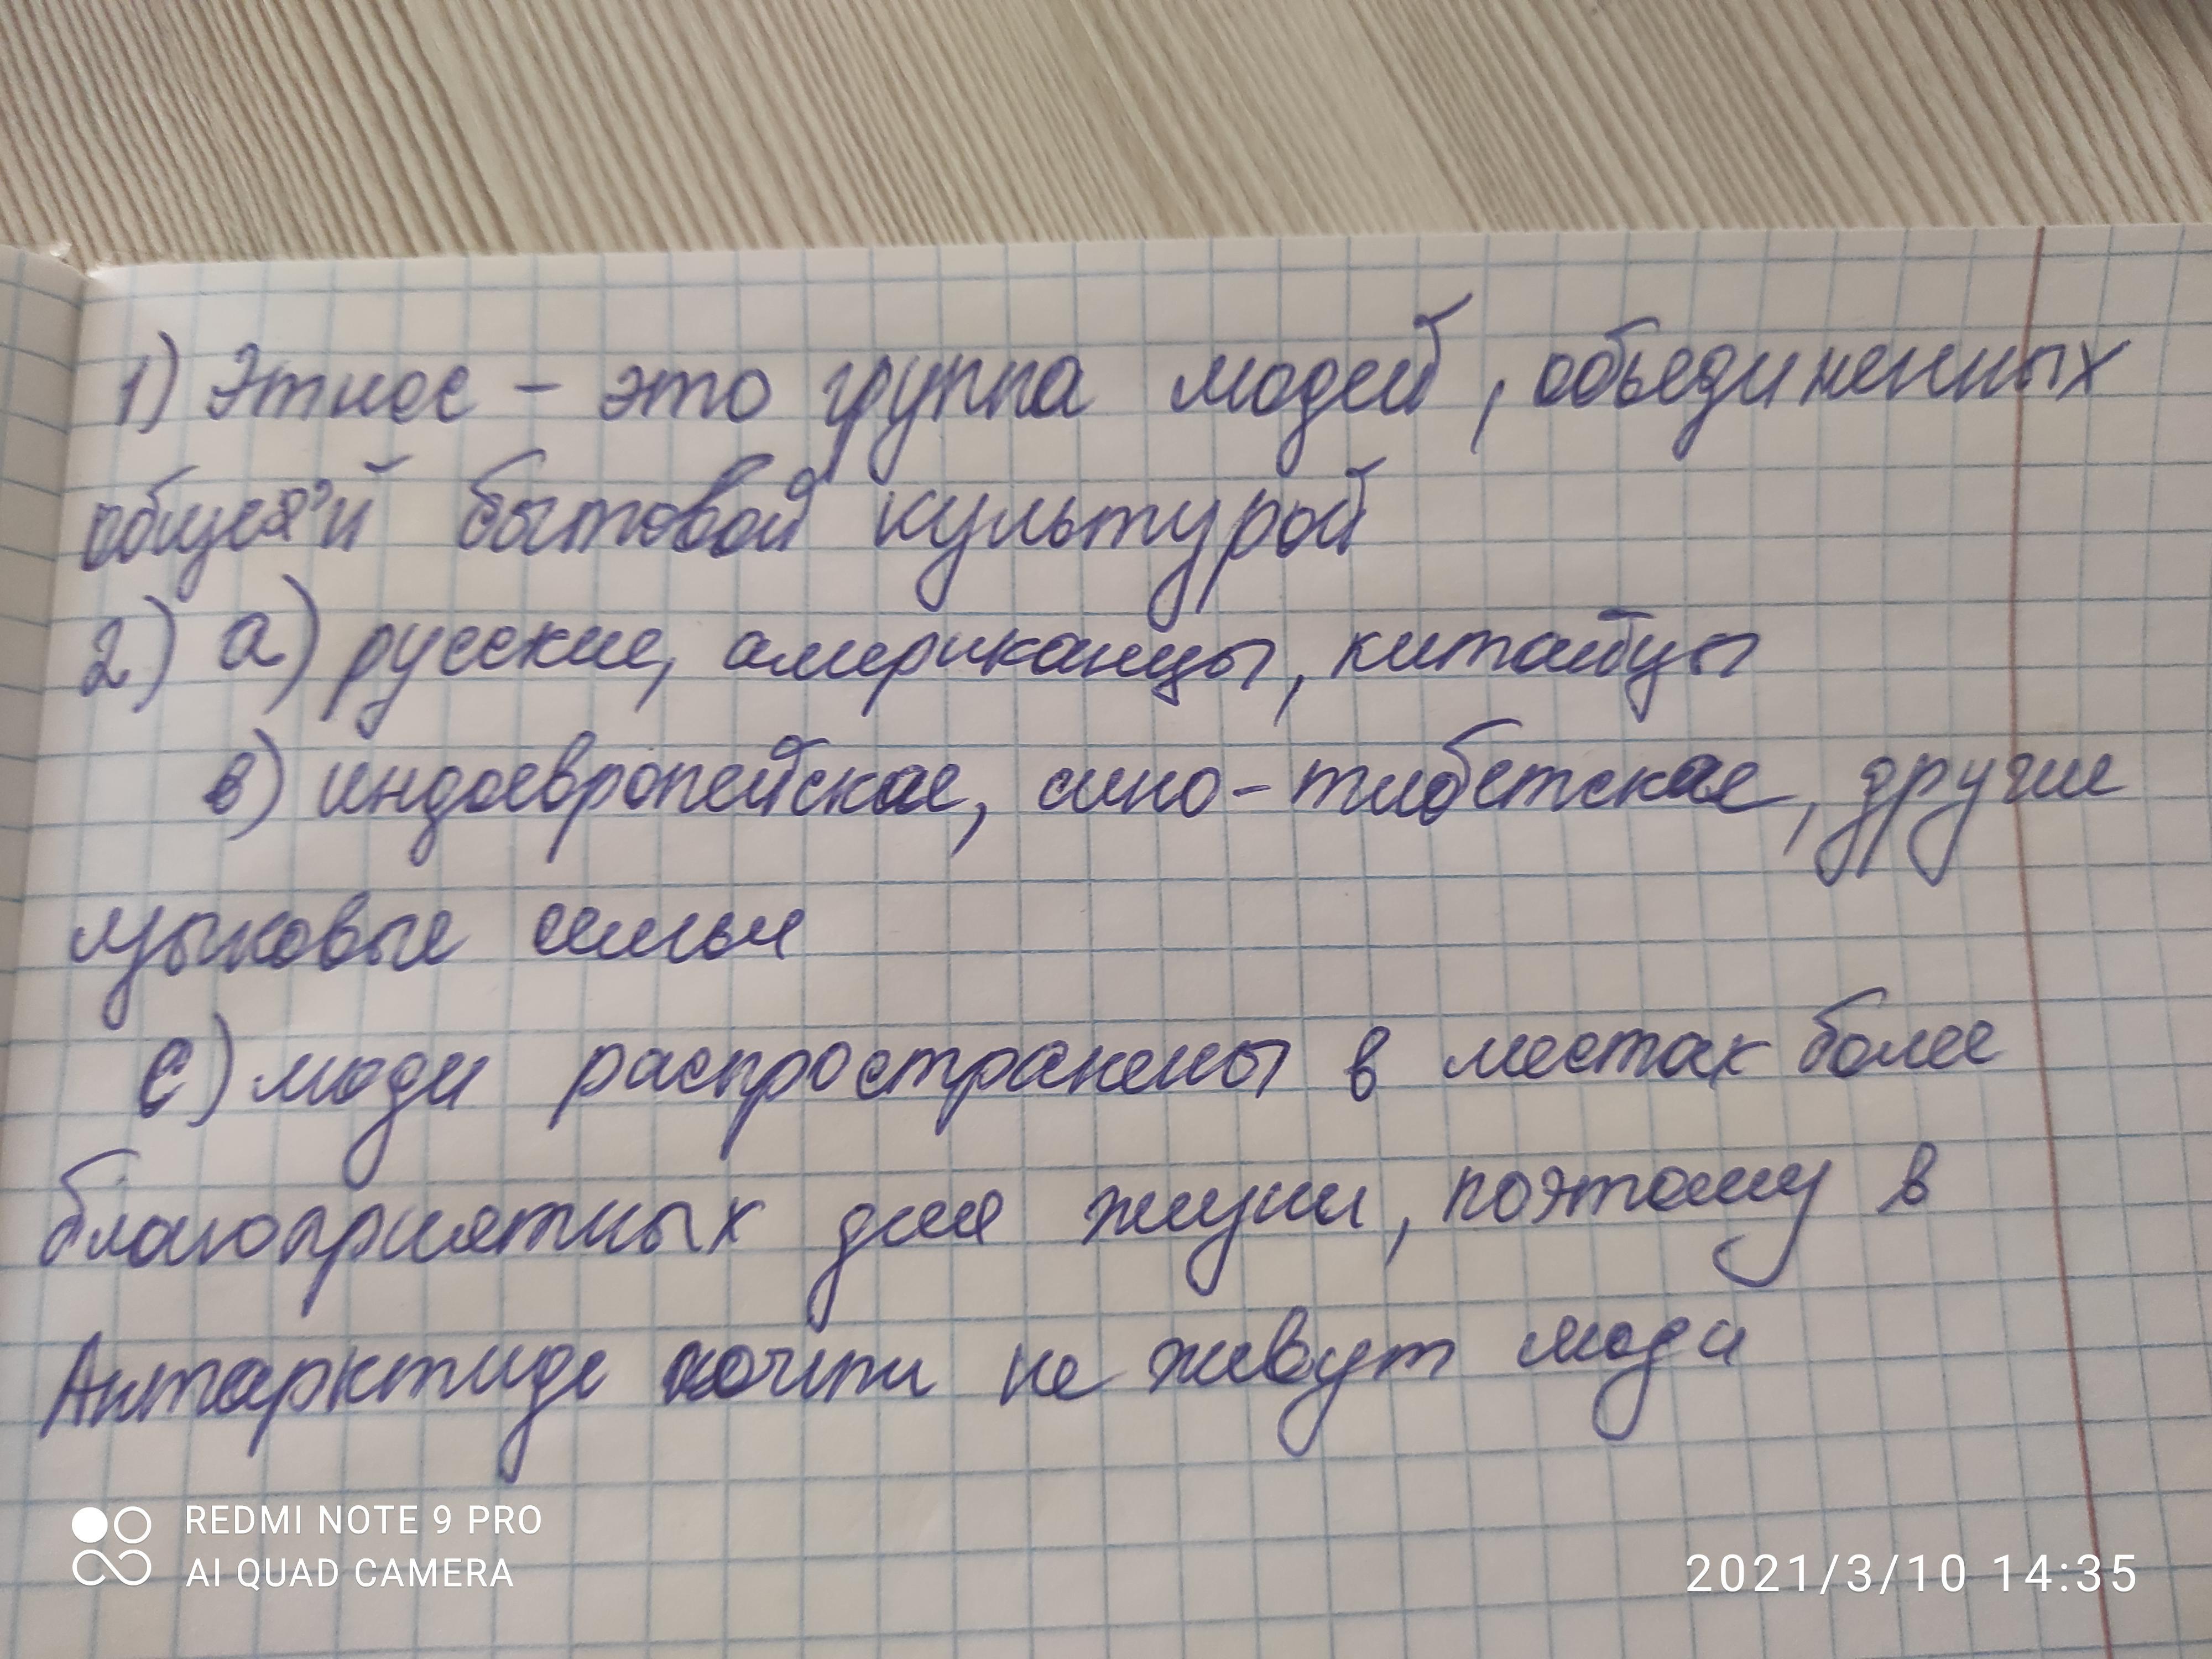 1) Этнос - это группа людей, объединенных
общей бытовой культурой
2) а) русские, американцы, китайцы
в) индоевропейская, сино-тибетская, другие
языковые семьи
с) люди распространены в местах более
благоприятных для жизни, поэтому в
Антарктиде почти не живут люди
REDMI NOTE 9 PRO
AI QUAD CAMERA
2021/3/10 14:35